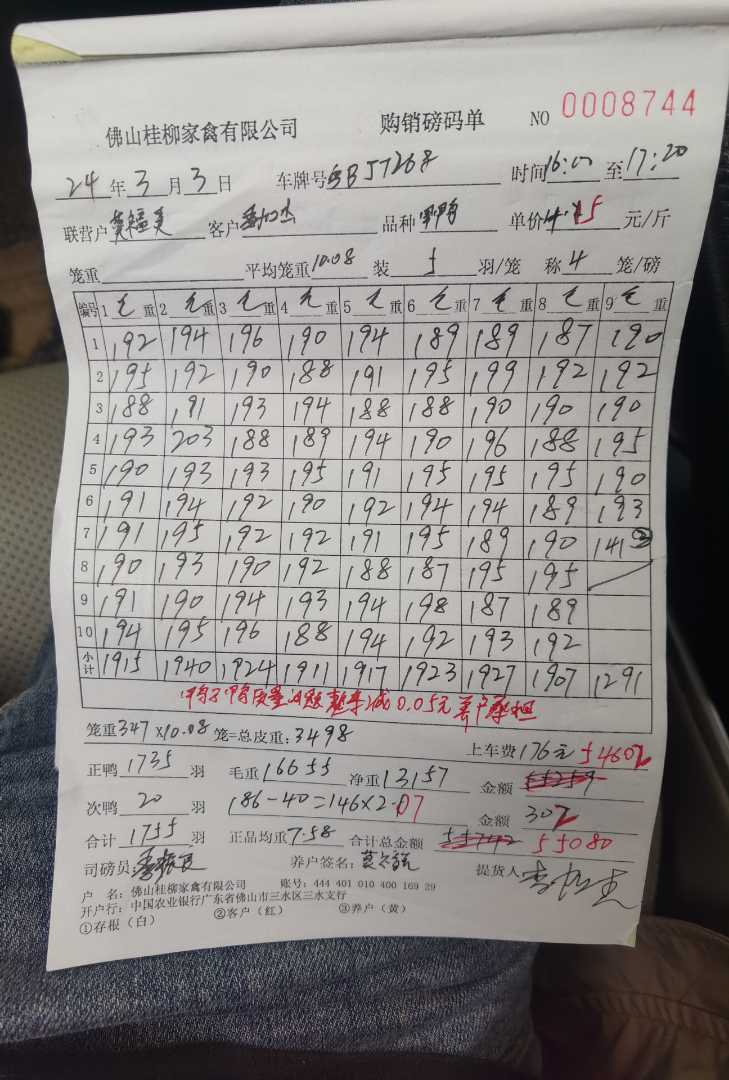 佛山桂柳家禽有限公司 购销磅码单 NO 0008744
24 年 3 月 3 日 车牌号 粤B57268 时间 16:00 至 17:20
联营户 客户 品种 单价 5 元/斤
笼重 平均笼重 10.08 装 5 羽/笼 称 4 笼/磅
编号 1 毛 重 2 毛 重 3 毛 重 4 毛 重 5 毛 重 6 毛 重 7 毛 重 8 毛 重 9 毛 重
1 192 194 196 190 194 189 189 187 190
2 195 192 190 188 191 195 199 192 192
3 188 191 193 194 188 188 190 190 190
4 193 203 188 189 194 190 196 188 195
5 190 193 193 195 191 195 195 195 190
6 191 194 192 190 192 194 194 189 193
7 191 195 192 192 191 195 189 190 141 ③
8 190 193 190 192 188 187 195 195
9 191 190 194 193 194 198 187 189
10 194 195 196 188 194 192 193 192
小计 1915 1940 1924 1911 1917 1923 1927 1907 1291
减0.05元 养户承担
笼重 347 x10.08 笼=总皮重: 3498 上车费 176元
正鸭 1735 羽 毛重 16655 净重 13157 金额 54602
次鸭 20 羽 186-40=146x2.07 金额 302
合计 1755 羽 正品均重 7.58 合计总金额 55080
司磅员 养户签名: 提货人
户 名: 佛山桂柳家禽有限公司 账号: 444 401 010 400 169 29
开户行: 中国农业银行广东省佛山市三水区三水支行
①存根(白) ②客户(红) ③养户(黄)